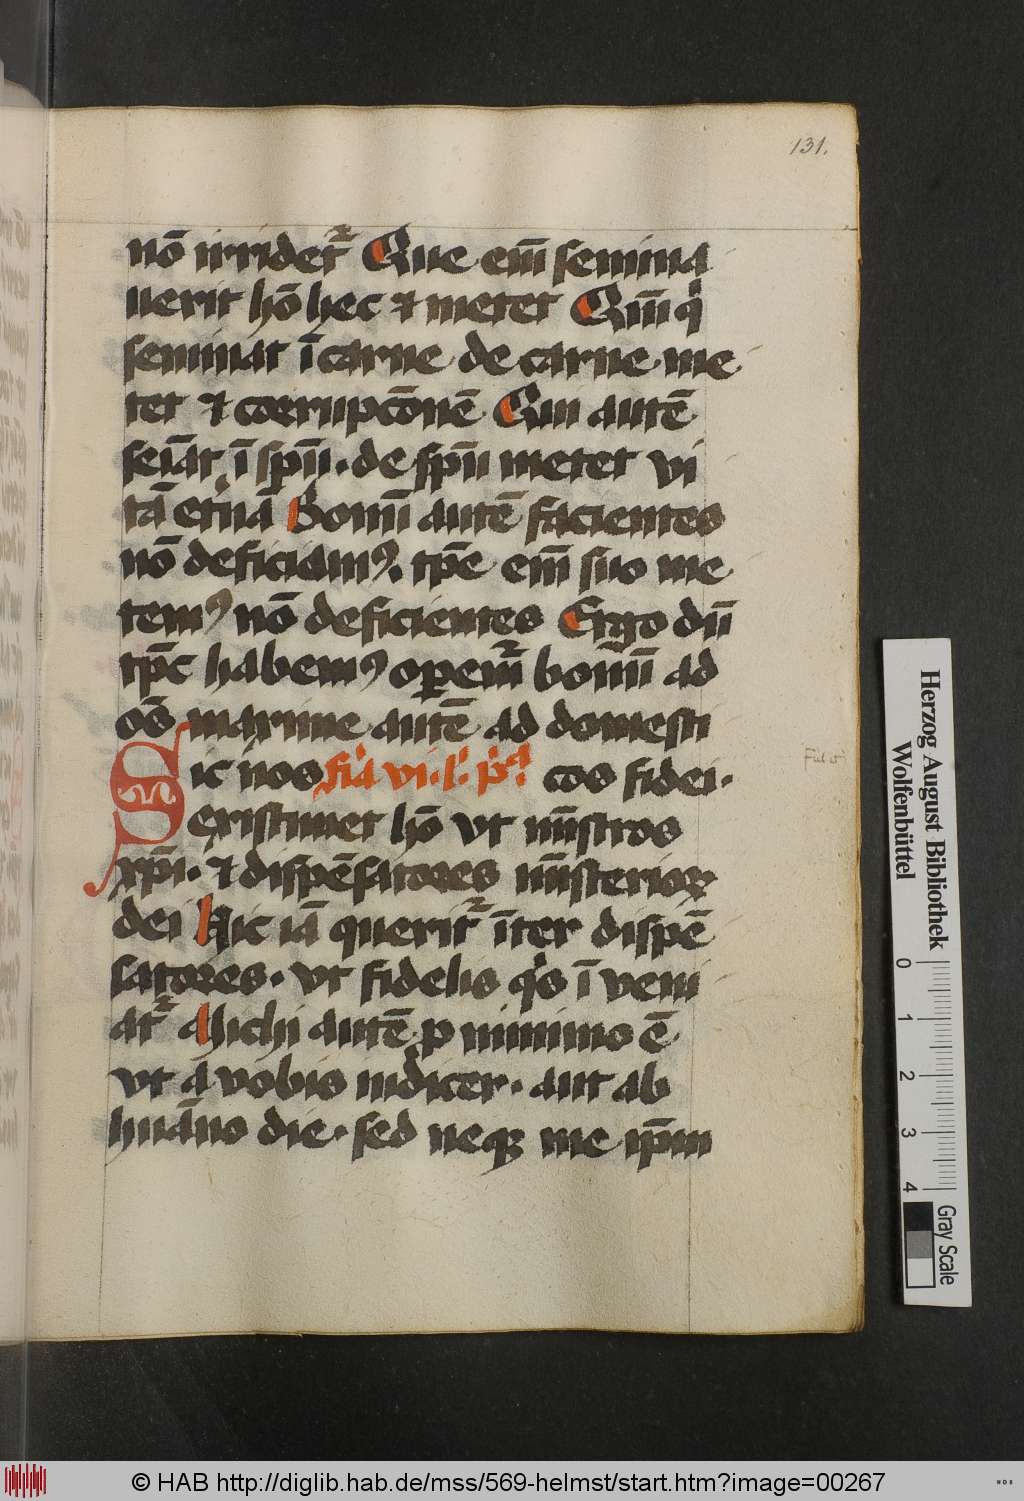 131.
nō irridet᷑ Que em̄ semina
uerit hō hec ⁊ metet Qm̄ qͥ
seminat ī carne de carne me
tet ⁊ corrupcōnē Qui autē
seīat ī sp̄u. de sp̄u metet vi
tā et̓nā Bonū autē facientes
nō deficiamꝰ. tp̄e em̄ suo me
temꝰ nō deficientes Ergo dū
tp̄e habemꝰ operem᷑ bonū ad
oēs maxime autē ad domesti
Sic nos fīa vi. l. pͥª cos fidei.
existimet hō vt mīstros
xp̄i. ⁊ dispēsatores mīsterioꝝ
dei Hic iā querit᷑ īter dispē
satores. vt fidelis qͥs īveni
at᷑ Michi autē p mīmimo ē
vt a vobis iudicer. aut ab
huāno die. sed neqꝫ me ip̄m
Herzog August Bibliothek
Wolfenbüttel
0
1
2
3
4
Gray Scale
© HAB http://diglib.hab.de/mss/569-helmst/start.htm?image=00267